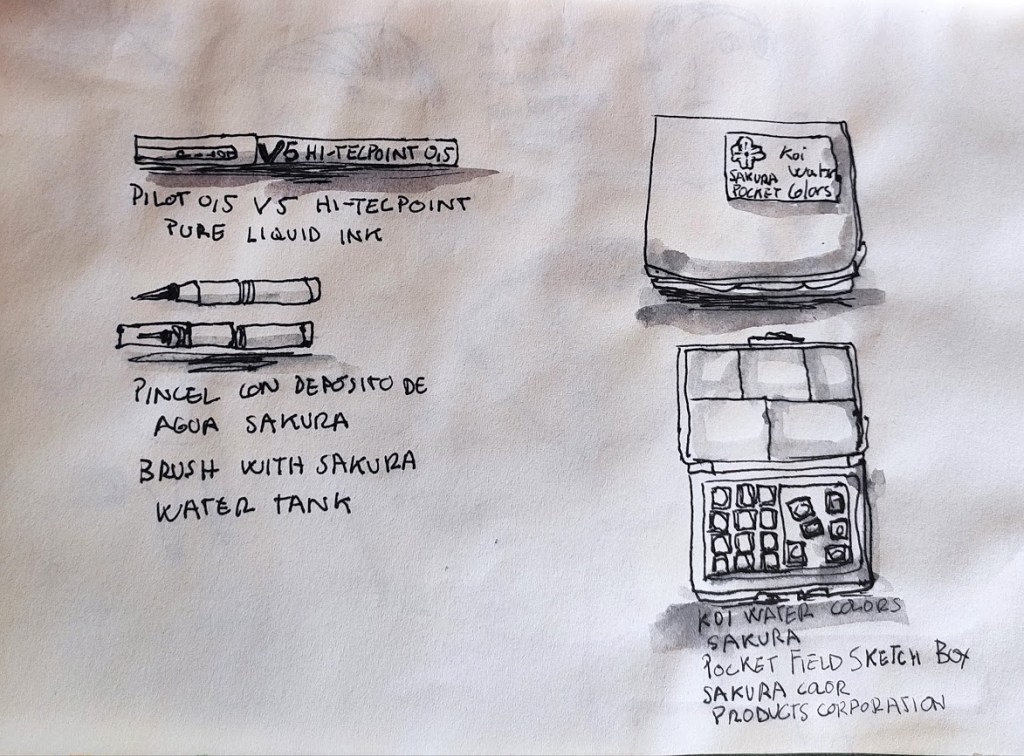 V5 HI-TECPOINT 0,5
PILOT 0,5 V5 HI-TECPOINT
PURE LIQUID INK
PINCEL CON DEPÓSITO DE
AGUA SAKURA
BRUSH WITH SAKURA
WATER TANK
Koi
SAKURA Water
POCKET Colors
KOI WATER COLORS
SAKURA
POCKET FIELD SKETCH BOX
SAKURA COLOR
PRODUCTS CORPORATION